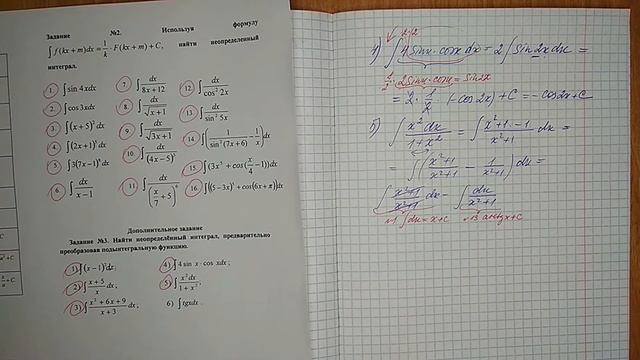 Задание №2. Используя формулу
∫ f(kx + m)dx = 1/k · F(kx + m) + C, найти неопределенный
интеграл.
1. ∫ sin 4xdx
2. ∫ cos 3xdx
3. ∫ (x + 5)³dx
4. ∫ (2x + 1)⁵dx
5. ∫ 3(7x − 1)⁶dx
6. ∫ dx/(x − 1)
7. ∫ dx/(8x + 12)
8. ∫ dx/√(x + 1)
9. ∫ dx/√(3x + 1)
10. ∫ dx/(4x − 5)⁷
11. ∫ dx/(x/7 + 5)⁶
12. ∫ dx/cos² 2x
13. ∫ dx/sin² 5x
14. ∫ (1/sin²(7x + 6) − 1/x)dx
15. ∫ (3x⁵ + cos(x/4 − 1))dx
16. ∫ ((5 − 3x)⁶ + cos(6x + π))dx
Дополнительное задание
Задание №3. Найти неопределённый интеграл, предварительно
преобразовав подынтегральную функцию.
1) ∫ (x − 1)²dx;
2) ∫ (x + 5)/x dx;
3) ∫ (x² + 6x + 9)/(x + 3) dx;
4) ∫ 4 sin x · cos xdx;
5) ∫ x²dx/(1 + x²);
6) ∫ tgxdx
2·2
4) ∫ 4 sinx · cosx dx = 2 ∫ sin 2x dx =
2 sinx · cosx = sin2x
= 2 · 1/2 · (−cos2x) + C = −cos2x + C
5) ∫ x² dx/(1 + x²) = ∫ (x² + 1 − 1)/(x² + 1) dx =
= ∫ ((x² + 1)/(x² + 1) − 1/(x² + 1)) dx =
∫ (x² + 1)/(x² + 1) dx − ∫ dx/(x² + 1)
∫ dx = x + C
arctgx + C